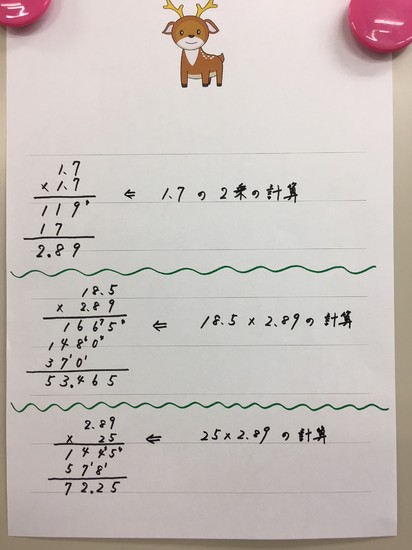 1.7
× 1.7 ⇐ 1.7 の 2乗の計算
119
17
2.89
18.5
× 2.89 ⇐ 18.5 × 2.89 の 計算
1665
1480
370
53.465
2.89
× 25 ⇐ 25 × 2.89 の計算
1445
578
72.25